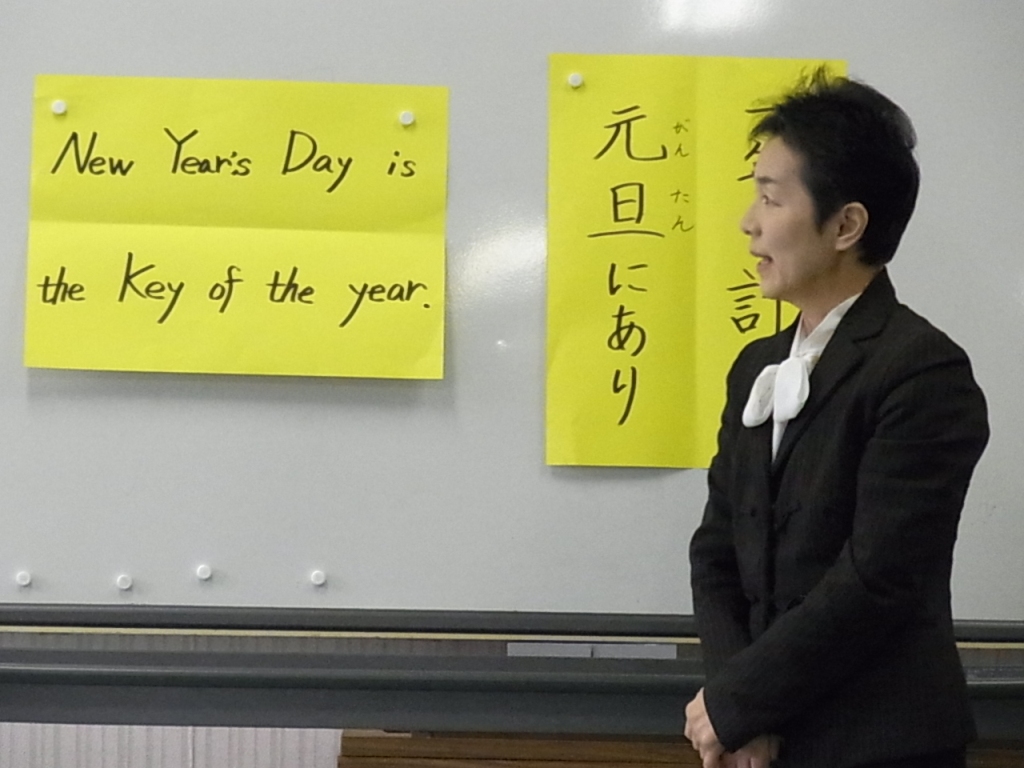 New Year's Day is
the Key of the year.
計
元旦にあり
がんたん